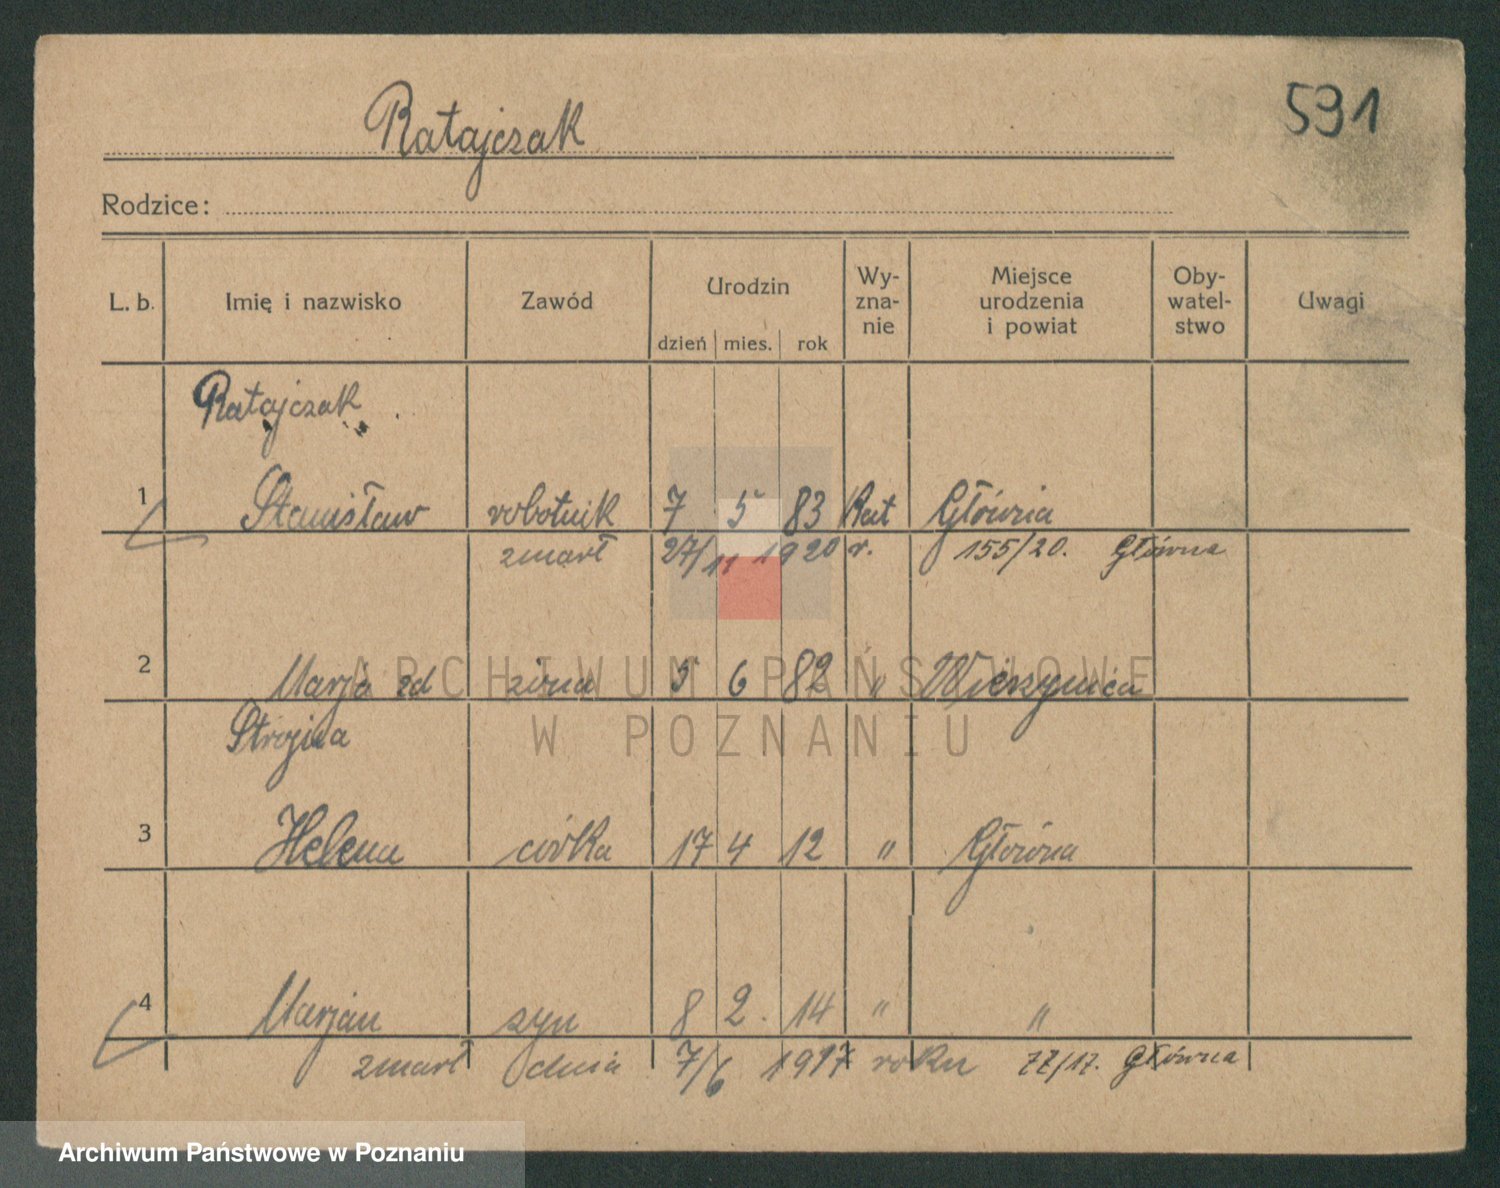 Ratajczak
591
Rodzice:
L. b. Imię i nazwisko Zawód Urodzin dzień mies. rok Wy-zna-nie Miejsce urodzenia i powiat Oby-watel-stwo Uwagi
Ratajczak
1 Stanisław robotnik 7 5 83 Kat Główna
zmarł 27/11 1920 r. 155/20. Główna
2 Marja zd żona 5 6 82 "
ARCHIWUM PAŃSTWOWE
W POZNANIU
3 Helena córka 17 4 12 " Główna
4 Marjan syn 8 2. 14 " "
zmarł dnia 7/6 1917 roku 77/17. Główna
Archiwum Państwowe w Poznaniu